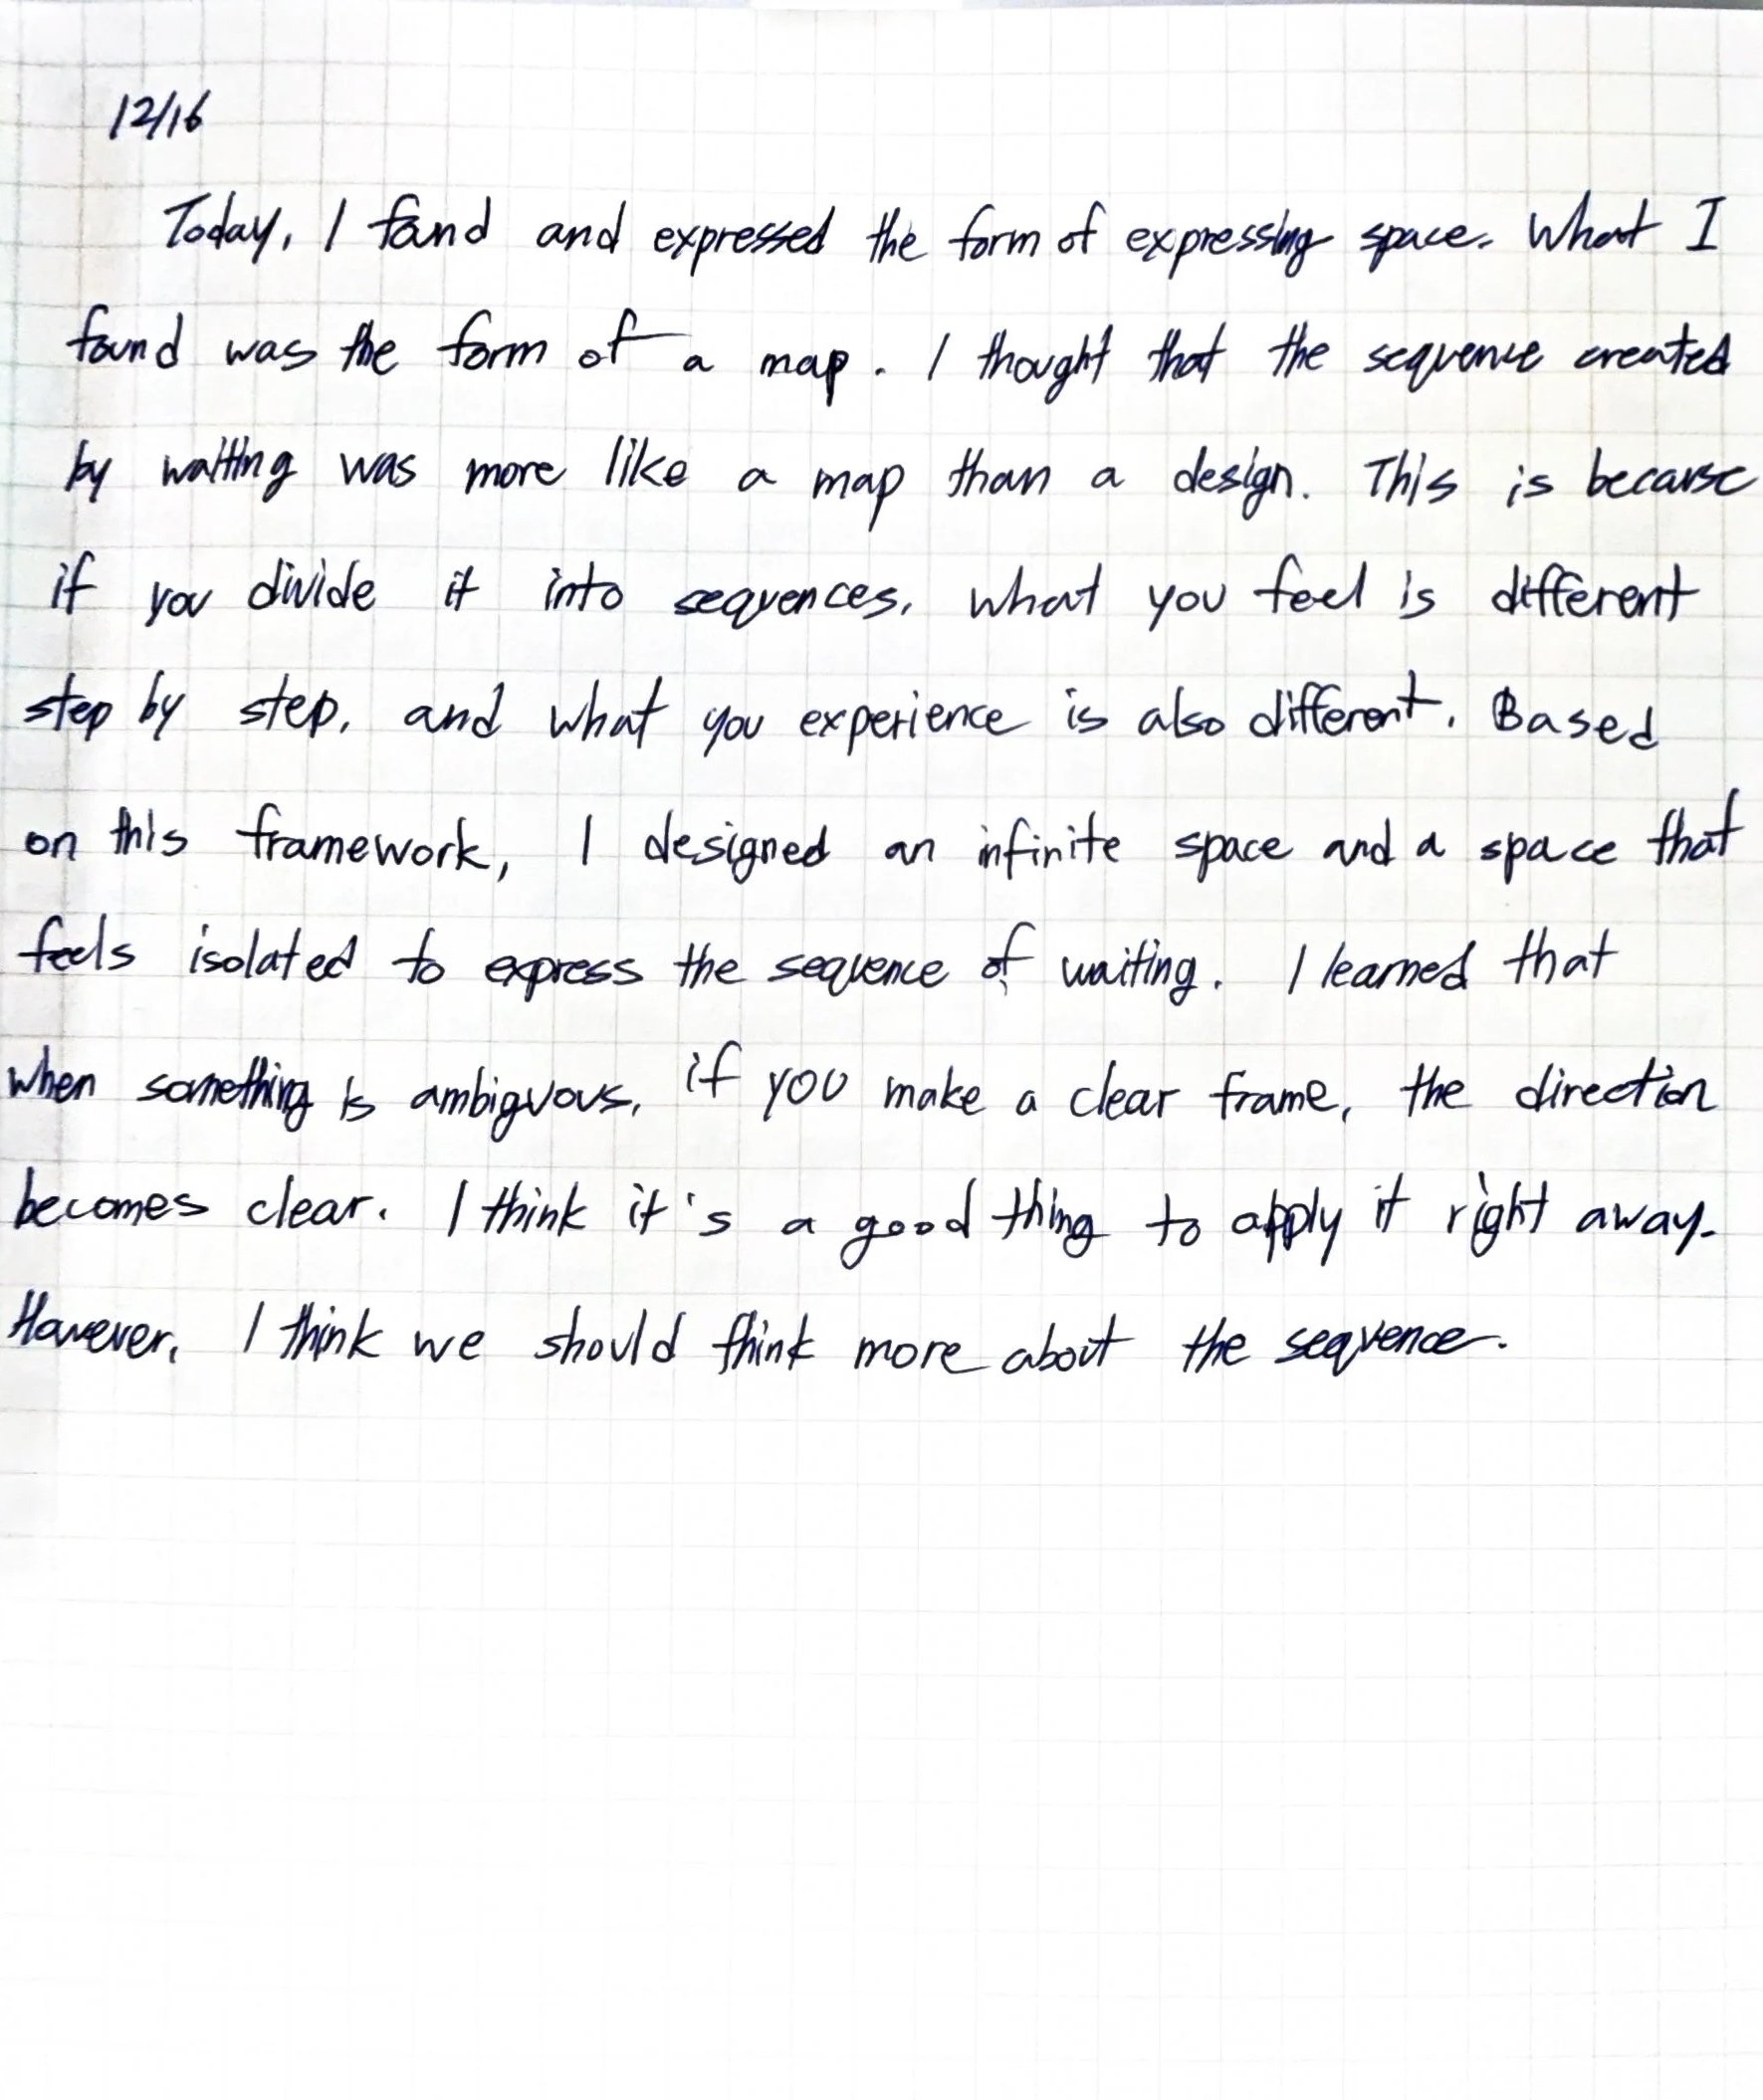 12/16
Today, I found and expressed the form of expressing space. What I
found was the form of a map. I thought that the sequence created
by waiting was more like a map than a design. This is because
if you divide it into sequences, what you feel is different
step by step, and what you experience is also different. Based
on this framework, I designed an infinite space and a space that
feels isolated to express the sequence of waiting. I learned that
when something is ambiguous, if you make a clear frame, the direction
becomes clear. I think it's a good thing to apply it right away.
However, I think we should think more about the sequence.